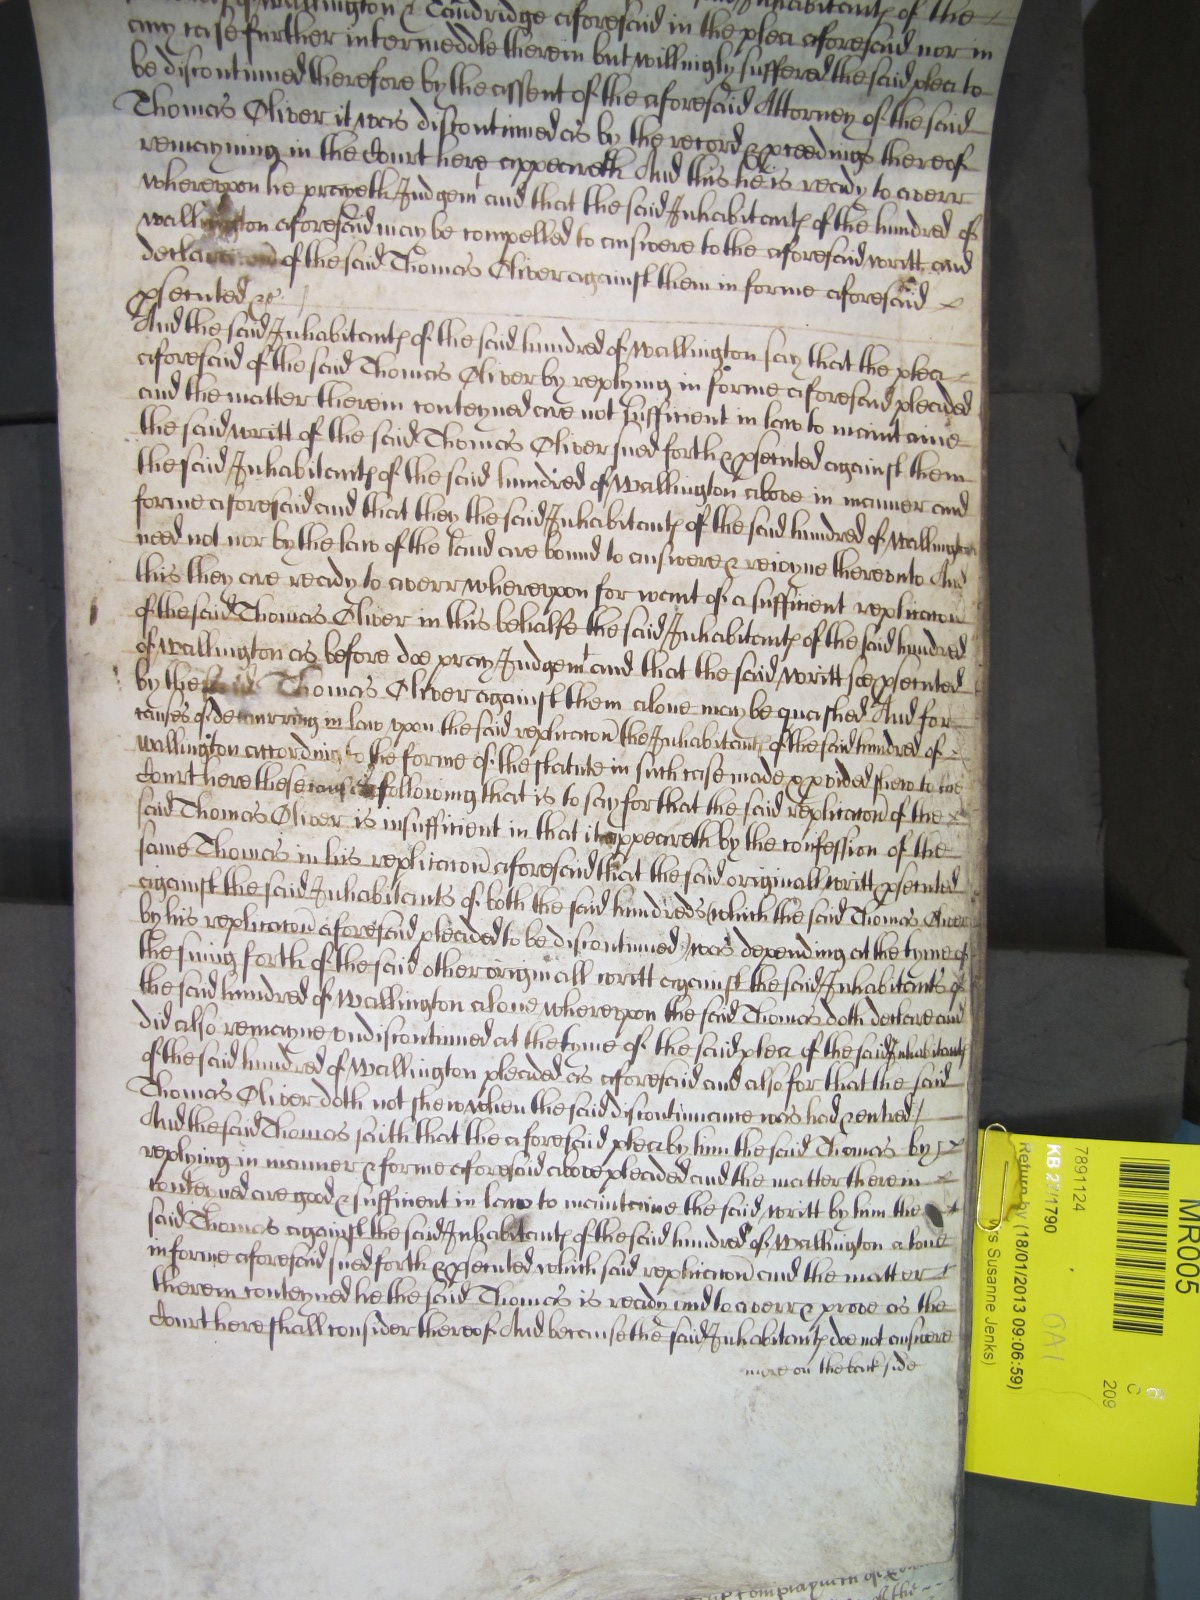 of Wallington & Tandridge aforesaid in the plea aforesaid nor in
any case further intermeddle therein but willingly suffered the said plea to
be discontinued therefore by the assent of the aforesaid Attorney of the said
Thomas Oliver it was discontinued as by the record & pceedings thereof
remayning in the Court here appeareth And this he is ready to averr
whereupon he prayeth Judgemt and that the said Inhabitants of the hundred of
Wallington aforesaid may be compelled to answere to the aforesaid writt and
declaracon of the said Thomas Oliver against them in forme aforesaid
psented &c
And the said Inhabitants of the said hundred of Wallington say that the plea
aforesaid of the said Thomas Oliver by replying in forme aforesaid pleaded
and the matter therein conteyned are not sufficient in law to maintaine
the said writt of the said Thomas Oliver sued forth & psented against them
the said Inhabitants of the said hundred of Wallington above in manner and
forme aforesaid and that they the said Inhabitants of the said hundred of Wallington
need not nor by the law of the land are bound to answere & reioyne thereunto And
this they are ready to averr whereupon for want of a sufficient replicacon
of the said Thomas Oliver in this behalfe the said Inhabitants of the said hundred
of Wallington as before doe pray Judgemt and that the said writt soe psented
by the said Thomas Oliver against them alone may be quashed And for
causes of demurring in law upon the said replicacon the Inhabitants of the said hundred of
Wallington according to the forme of the statute in such case made & pvided shew to the
Court here these causes following that is to say for that the said replicacon of the
said Thomas Oliver is insufficient in that it appeareth by the confession of the
same Thomas in his replicacon aforesaid that the said originall writt psented
against the said Inhabitants of both the said hundreds (which the said Thomas Oliver
by his replicacon aforesaid pleaded to be discontinued) was depending at the tyme of
the suing forth of the said other originall writt against the said Inhabitants of
the said hundred of Wallington alone whereupon the said Thomas doth declare and
did also remayne undiscontinued at the tyme of the said plea of the said Inhabitants
of the said hundred of Wallington pleaded as aforesaid and also for that the said
Thomas Oliver doth not shew when the said discontinuance was had & entred /
And the said Thomas saith that the aforesaid plea by him the said Thomas by
replying in manner & forme aforesaid above pleaded and the matter therein
conteyned are good & sufficient in law to maintaine the said writt by him the
said Thomas against the said Inhabitants of the said hundred of Wallington alone
in forme aforesaid sued forth & psented which said replicacon and the matter
therein conteyned he the said Thomas is ready and to averr & prove as the
Court here shall consider thereof And because the said Inhabitants doe not answere
more on the back side
MR005
7891124
KB 27/1790
Return by (18/01/2013 09:06:59)
Susanne Jenks)
C
209